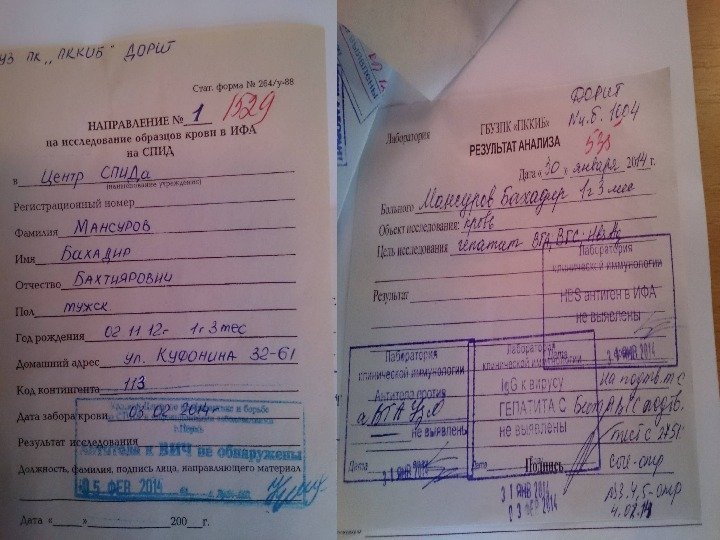 УЗ ПК „ПККИБ" ДОРИТ
Стат. форма № 264/у-88
НАПРАВЛЕНИЕ № 1 1529
на исследование образцов крови в ИФА
на СПИД
в Центр СПИДа
(наименование учреждения)
Регистрационный номер
Фамилия МАНСУРОВ
Имя БАХАДИР
Отчество БАХТИЯРОВИЧ
Пол мужск
Год рождения 02 11 12г 1г 3 мес
Домашний адрес ул. КУФОНИНА 32-61
Код контингента 113
Дата забора крови 03 02 2014
г.Пермь
Результат исследования
Антитела к ВИЧ не обнаружены
Должность, фамилия, подпись лица, направляющего материал
05 ФЕВ 2014
Дата « » 200 г.
ДОРИТ
N и.б. 1004
Лаборатория
ГБУЗПК «ПККИБ»
РЕЗУЛЬТАТ АНАЛИЗА
Дата « 30 » января 2014 г.
Больного Мансуров Бахадир 1г 3 мес
Объект исследования: кровь
Цель исследования гепатит ВГА, ВГС, HBsAg
Результат
Лаборатория
клинической иммунологии
HBS антиген в ИФА
не выявлены
Дата 31 ЯНВ 2014
Лаборатория
клинической иммунологии
Антитела против
ВГА
не выявлены
Дата
31 ЯНВ 2014
Лаборатория
клинической иммунологии
IgG к вирусу
ГЕПАТИТА С
не выявлены
Дата
Подпись
31 ЯНВ 2014
03 ФЕВ 2014
на подтв. т с
тест с
4.02.14